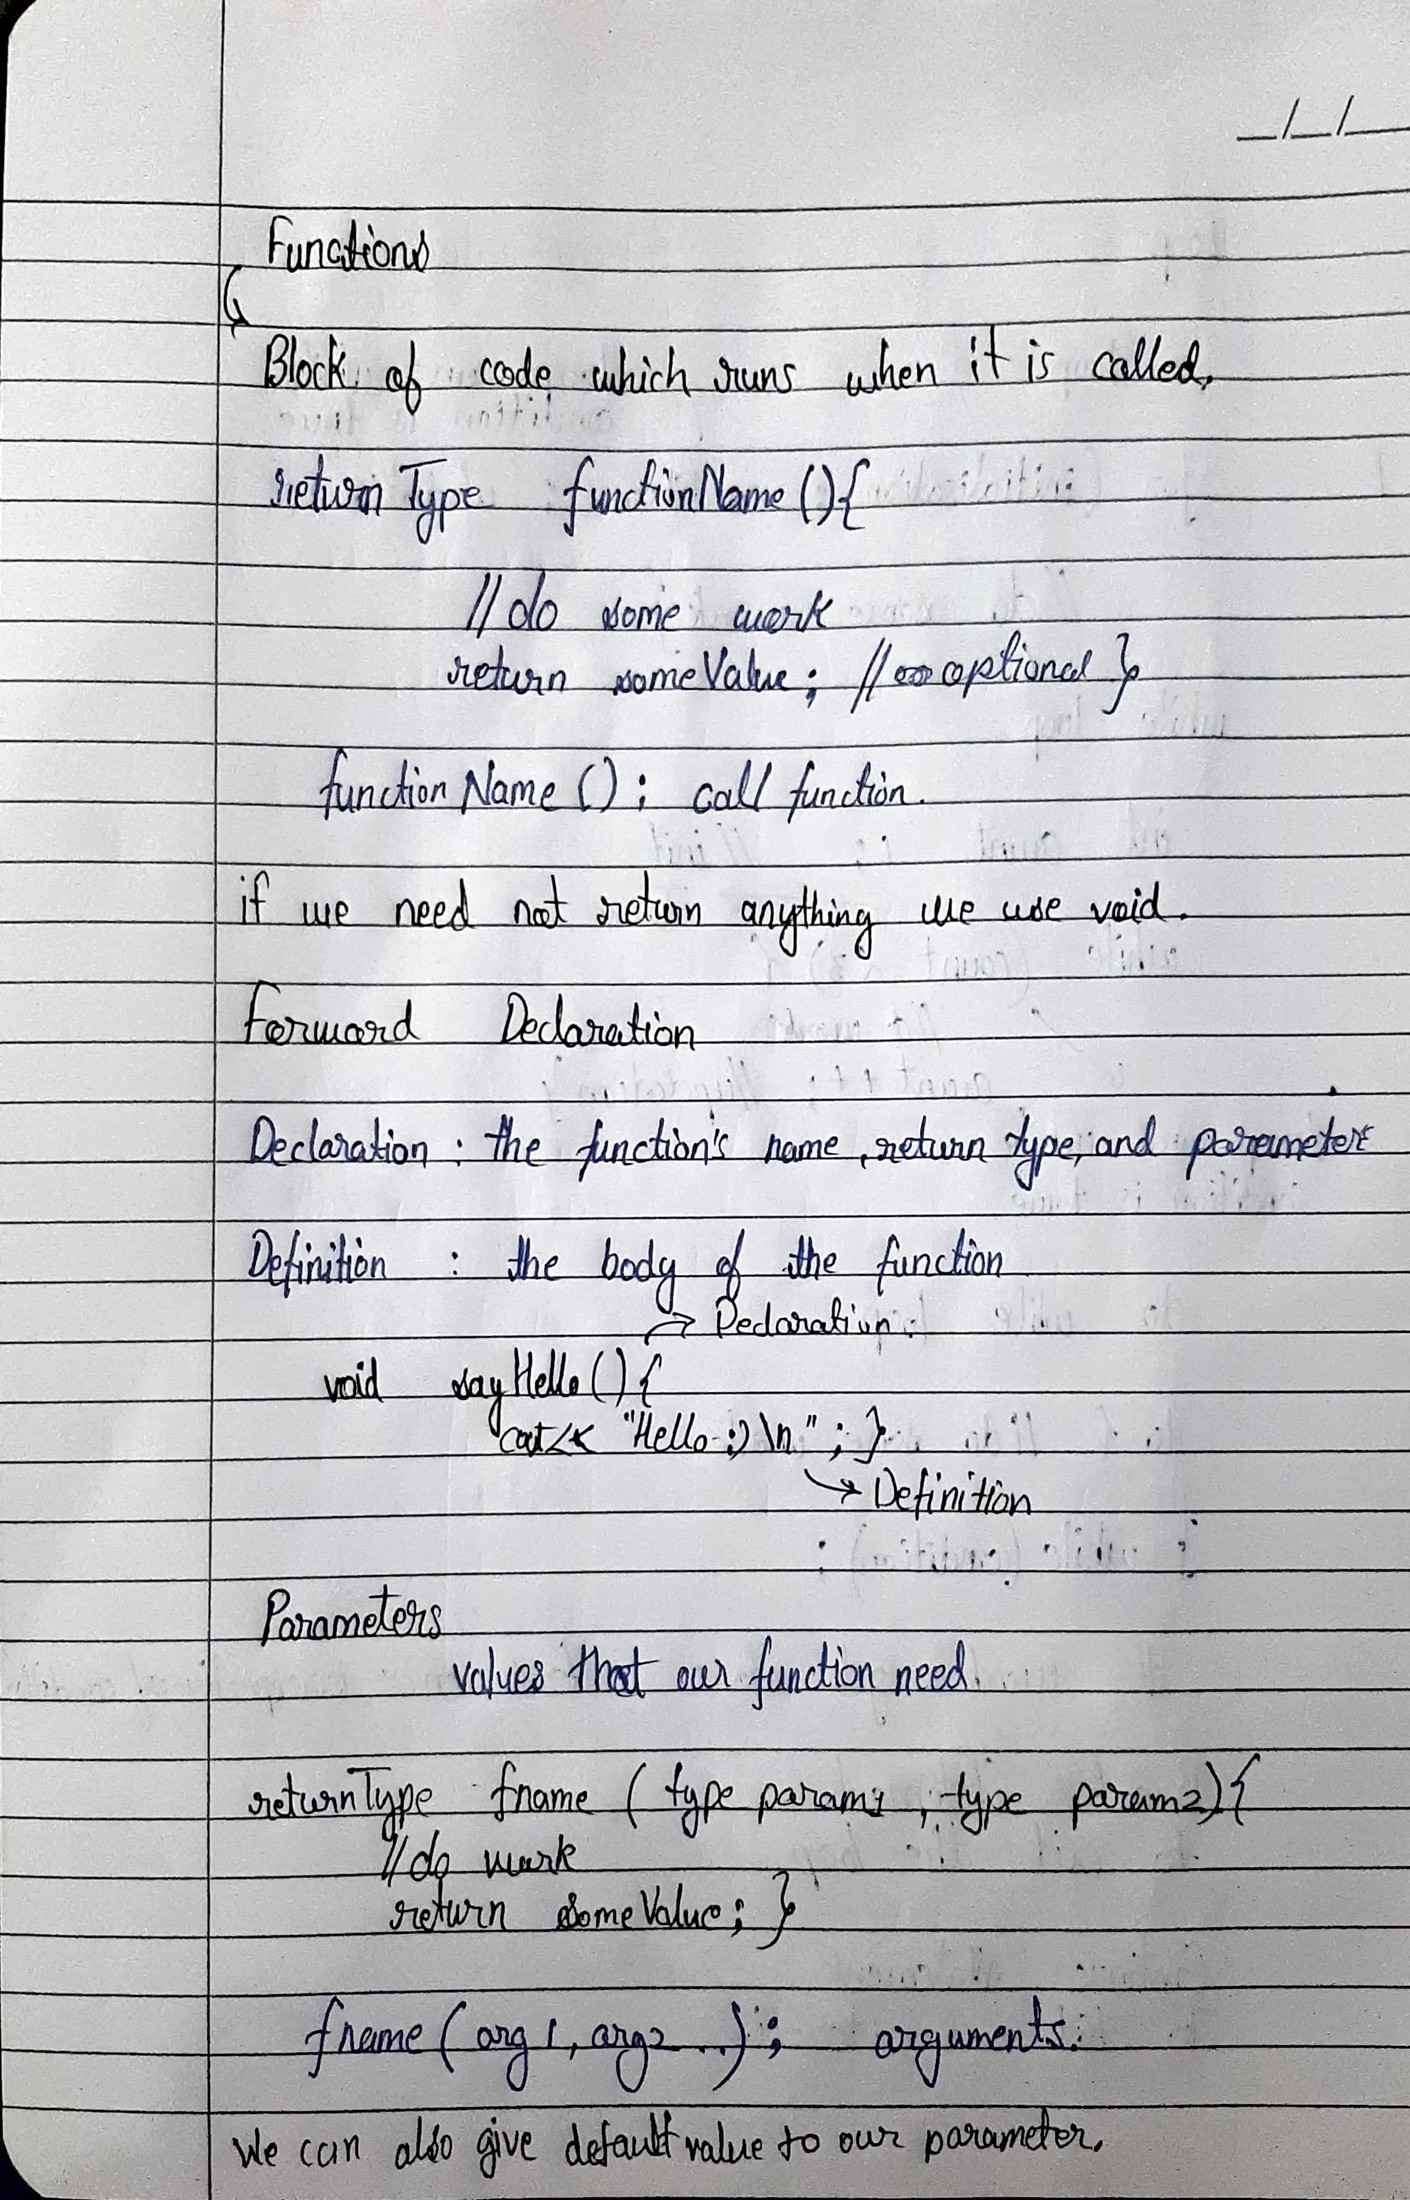 _/_/_
Functions
Block of code which runs when it is called.
returnType functionName (){
//do some work
return someValue; // optional }
functionName (); call function.
if we need not return anything we use void.
Forward Declaration
Declaration : the function's name, return type, and parameters
Definition : the body of the function
→ Declaration.
void sayHello () {
cout<< "Hello :) \n" ; }
→ Definition
Parameters
values that our function need.
returnType fname ( type param1 , type param2) {
//do work
return someValue; }
fname ( arg1, arg2 ..) ; arguments.
We can also give default value to our parameter.